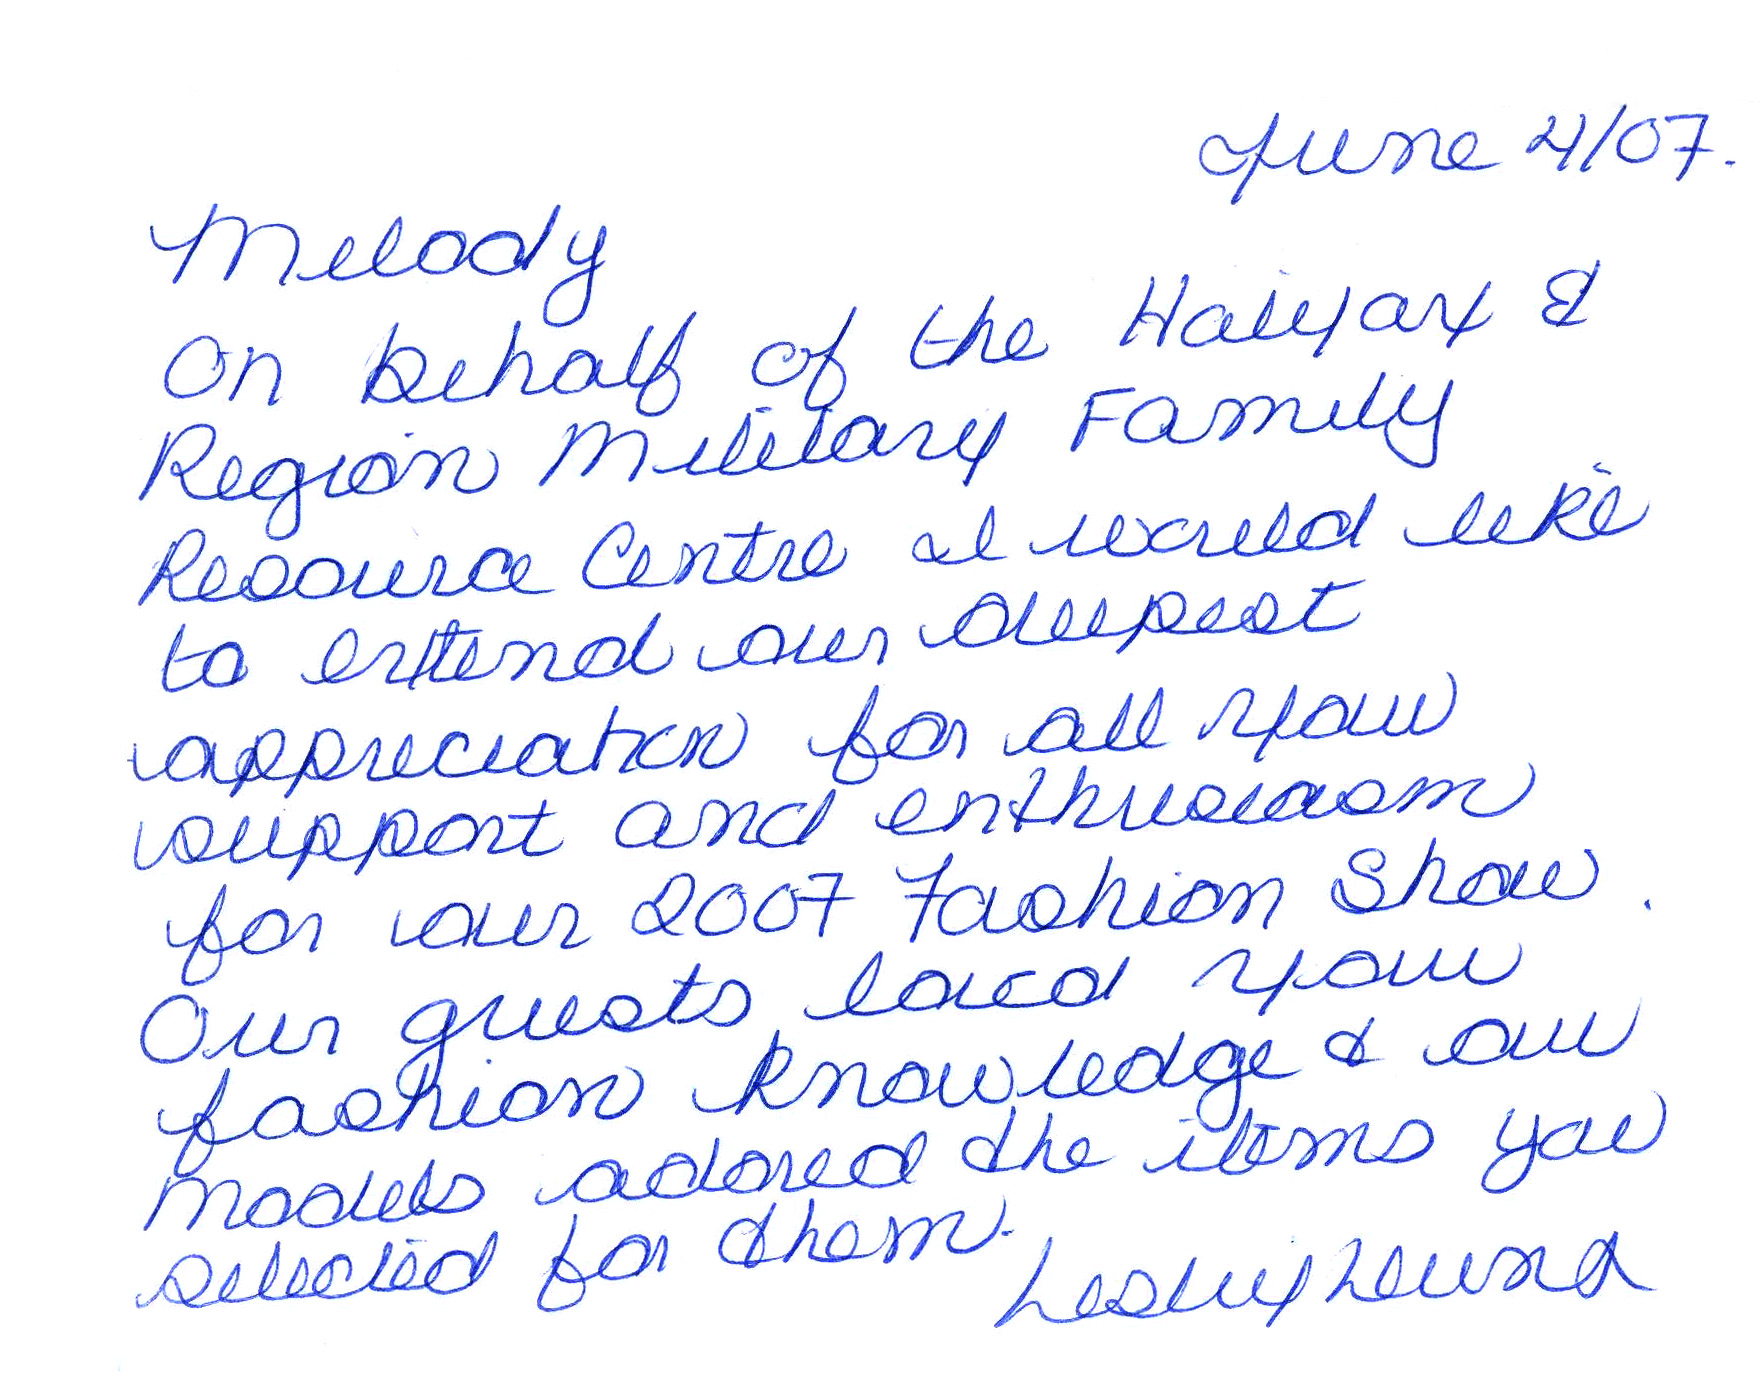 June 4/07.
Melody
On behalf of the Halifax &
Region Military Family
Resource Centre I would like
to extend our deepest
appreciation for all your
support and enthusiasm
for our 2007 Fashion Show.
Our guests loved your
fashion knowledge & our
models adored the items you
selected for them.
Lesley